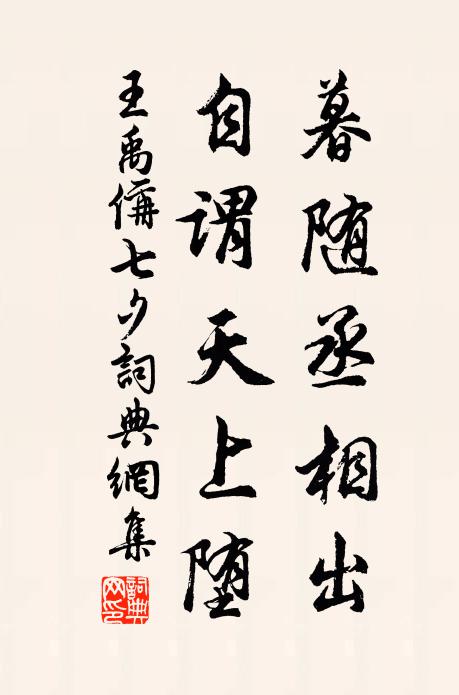 暮随丞相出
自謂天上堕
王禹偁七夕詞典網集
詞典網印